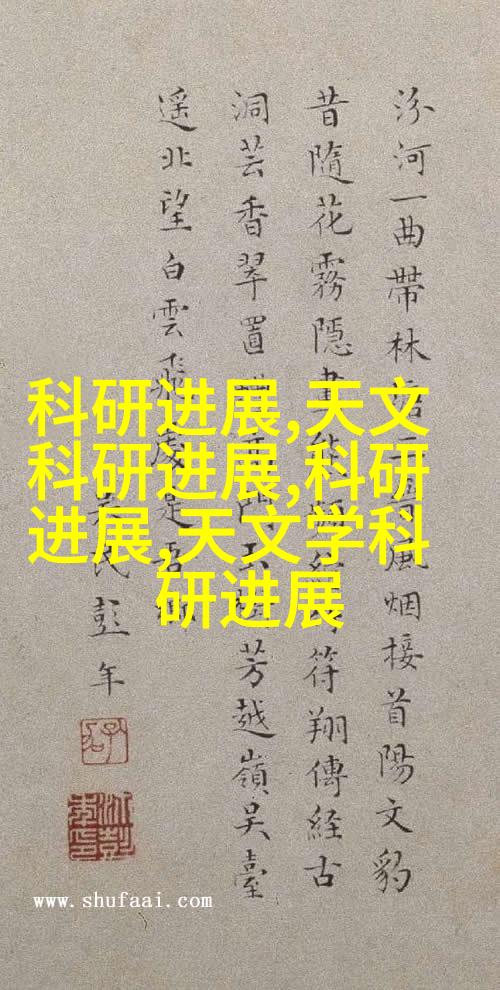 汾河一曲帶林風烟接首陽文豹
昔隨花霧隱符翔傳経古
洞芸香翠置芳越嶺吴臺
遥北望白雲飛處是吾鄉
民彭年
科研进展,天文
科研进展,科研
进展,天文学科
研进展
www.shufaai.com